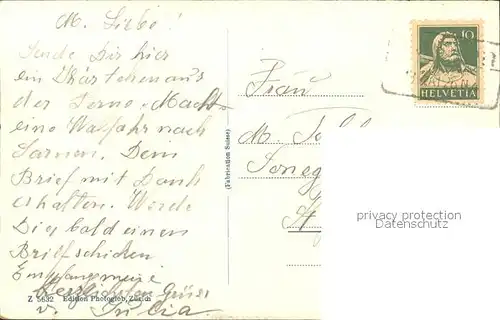 M. Liebe!
Sende Dir hier
ein Kärtchen aus
der Ferne. Macht
eine Walfahr nach
Sarnen. Dein
Brief mit Dank
erhalten. Werde
Dir bald einen
Brief schicken
Empfang meine
herzlichsten Grüsse
v.
Z 5632 Edition Photoglob, Zürich
(Fabrication Suisse)
10
HELVETIA
Frau
M.
privacy protection
Datenschutz